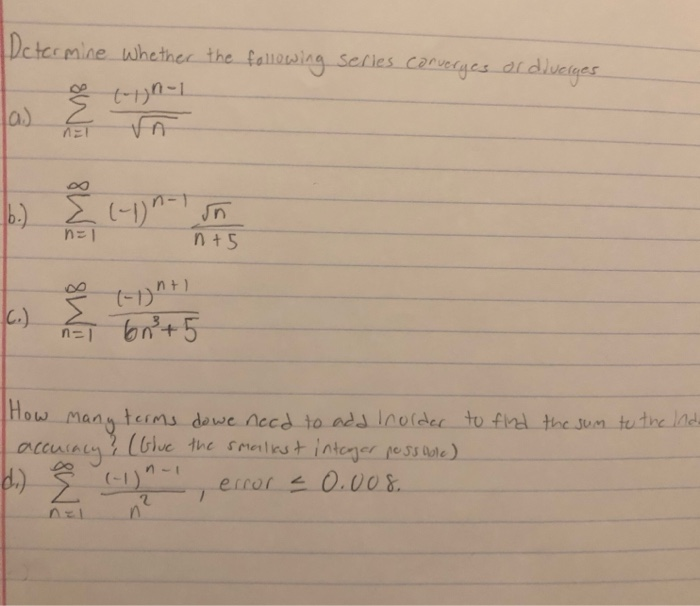 Determine whether the following series converges or diverges
a.) ∑_{n=1}^{∞} (-1)^{n-1} / √n
b.) ∑_{n=1}^{∞} (-1)^{n-1} √n / n+5
c.) ∑_{n=1}^{∞} (-1)^{n+1} / 6n³+5
How many terms do we need to add inorder to find the sum to the
accuracy? (Give the smallest integer possible)
d.) ∑_{n=1}^{∞} (-1)^{n-1} / n², error ≤ 0.008.